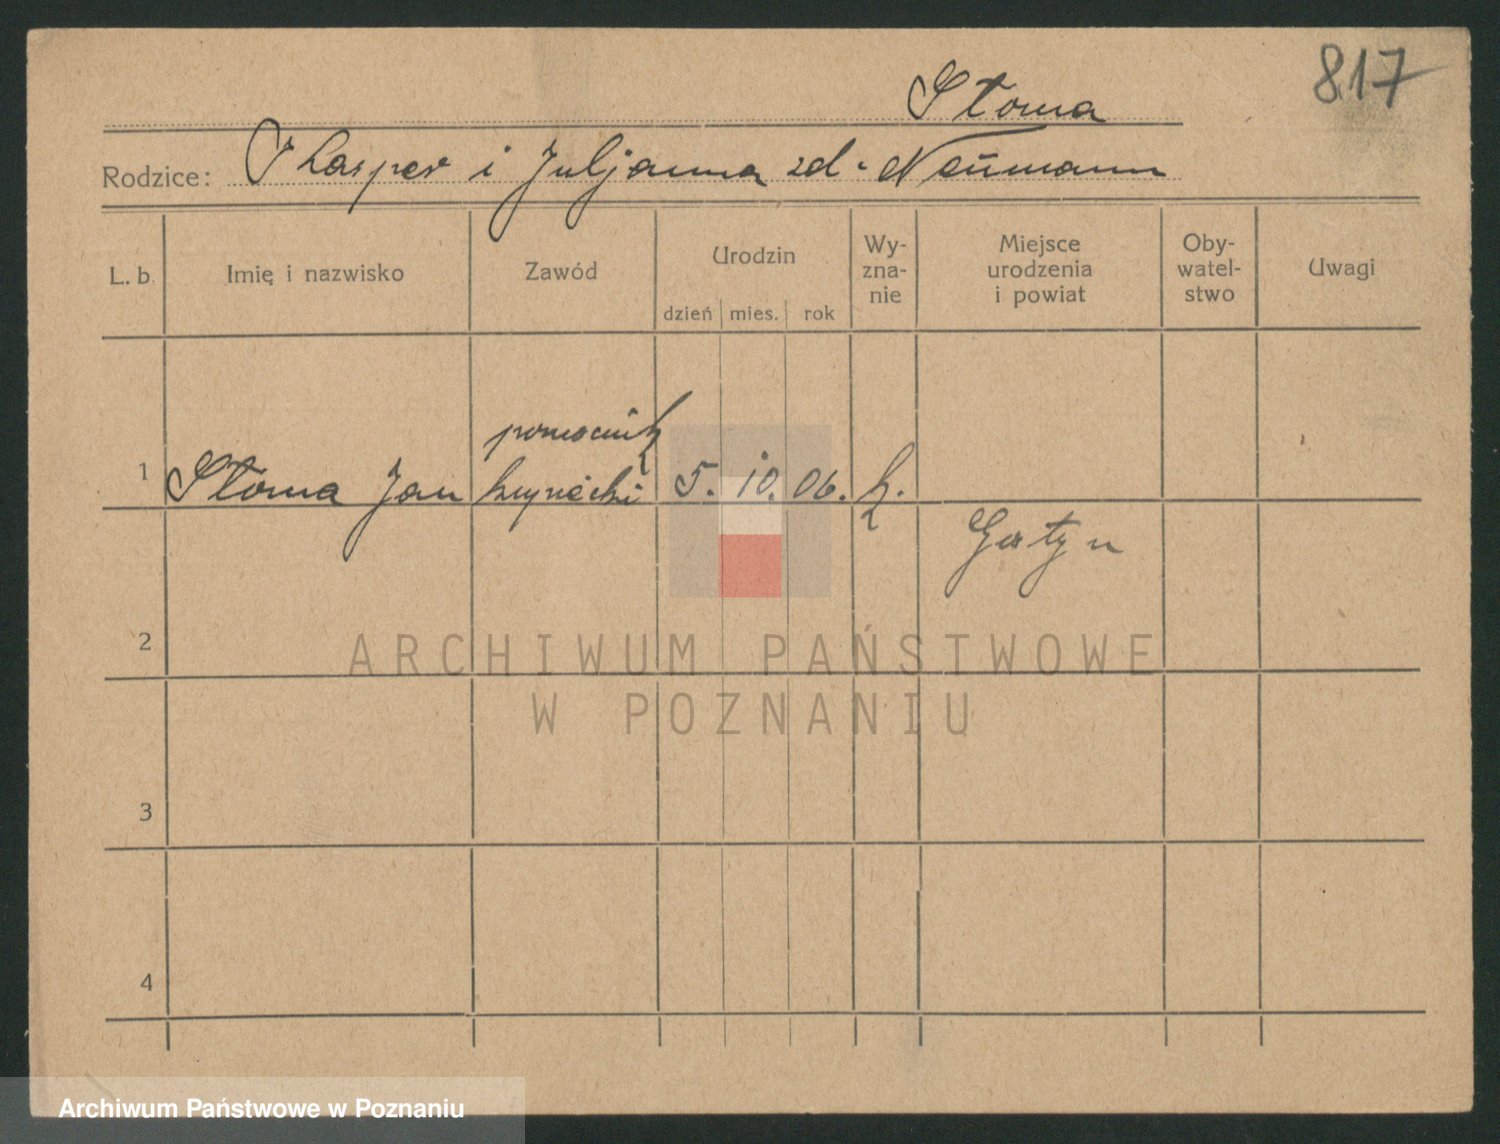 817
Słoma
Rodzice: Kasper i Juljanna zd. Neümann
L. b. Imię i nazwisko Zawód Urodzin dzień mies. rok Wy-zna-nie Miejsce urodzenia i powiat Oby-watel-stwo Uwagi
pomocnik
1 Słoma Jan kupiecki 5. 10. 06. k.
Gostyn
2
ARCHIWUM PAŃSTWOWE
W POZNANIU
3
4
Archiwum Państwowe w Poznaniu